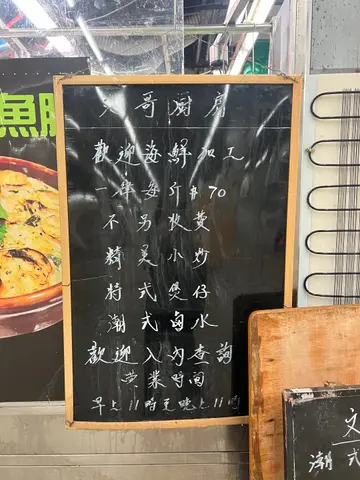 文哥厨房
歡迎海鮮加工
一律每斤$70
不另收費
精美小炒
特式煲仔
潮式鹵水
歡迎入內查詢
营業時间
早上11時至晚上11時
魚
文
潮式